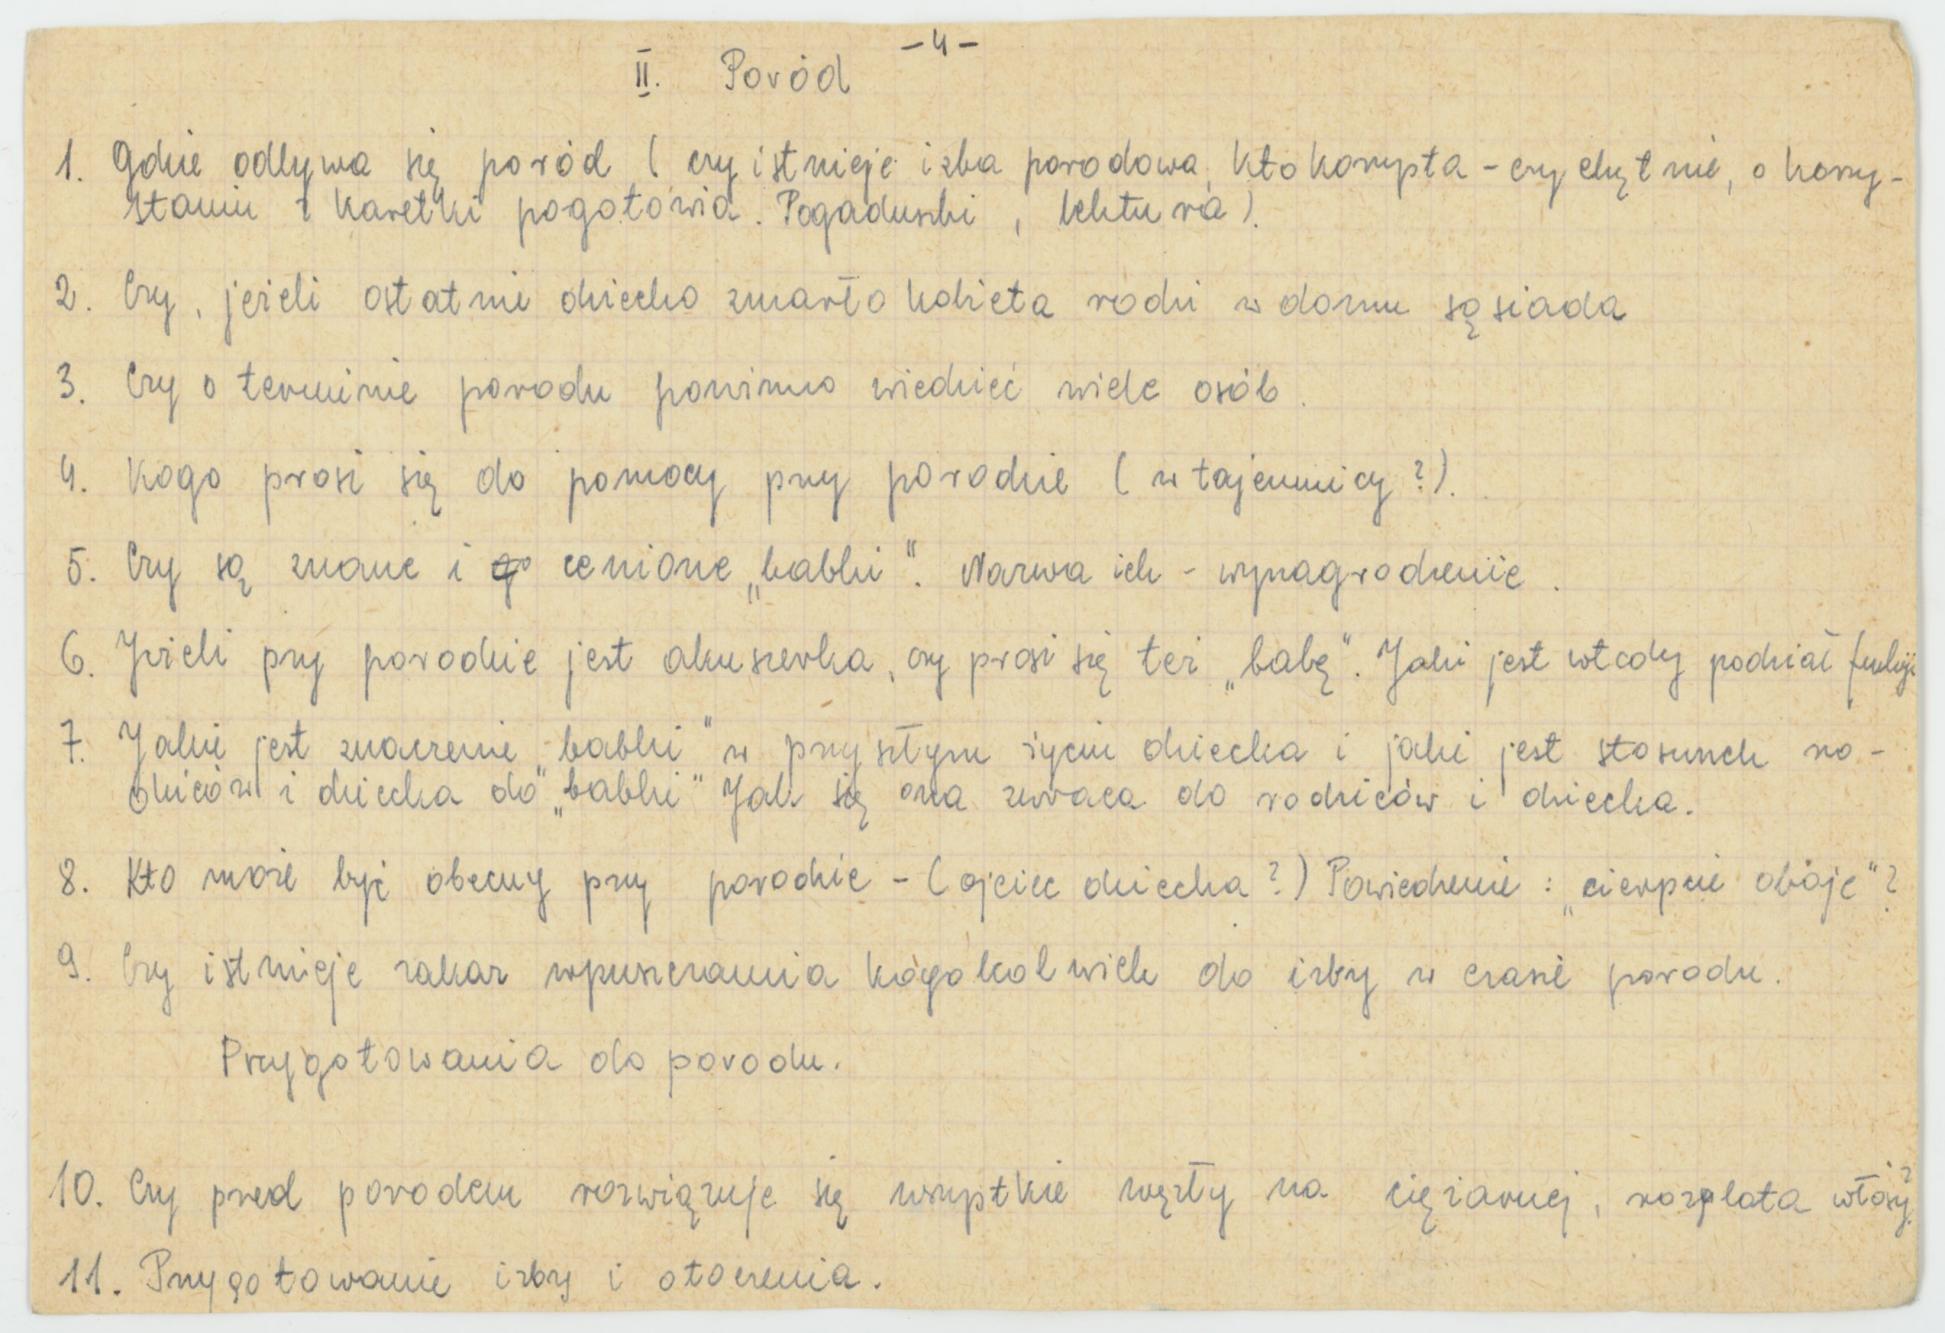 - 4 -
II. Poród
1. Gdzie odbywa się poród ( czy istnieje izba porodowa, kto korzysta - czy chętnie, o korzy-
staniu z karetki pogotowia. Pogaduszki, lektura).
2. Czy, jeżeli ostatnie dziecko zmarło kobieta rodzi w domu sąsiada
3. Czy o terminie porodu powinno wiedzieć wiele osób.
4. Kogo prosi się do pomocy przy porodzie ( w tajemnicy ?).
5. Czy są znane i cenione „babki". Nazwa ich - wynagrodzenie.
6. Jeżeli przy porodzie jest akuszerka, czy prosi się też „babę". Jaki jest wtedy podział funkcji
7. Jakie jest znaczenie „babki" w przyszłym życiu dziecka i jaki jest stosunek ro-
dziców i dziecka do „babki" Jak się ona zwraca do rodziców i dziecka.
8. Kto może być obecny przy porodzie - ( ojciec dziecka ?) Powiedzenie : „cierpcie oboje" ?
9. Czy istnieje zakaz wpuszczania kogokolwiek do izby w czasie porodu.
Przygotowania do porodu.
10. Czy przed porodem rozwiązuje się wszystkie węzły na ciężarnej, rozplata włosy ?
11. Przygotowanie izby i otoczenia.